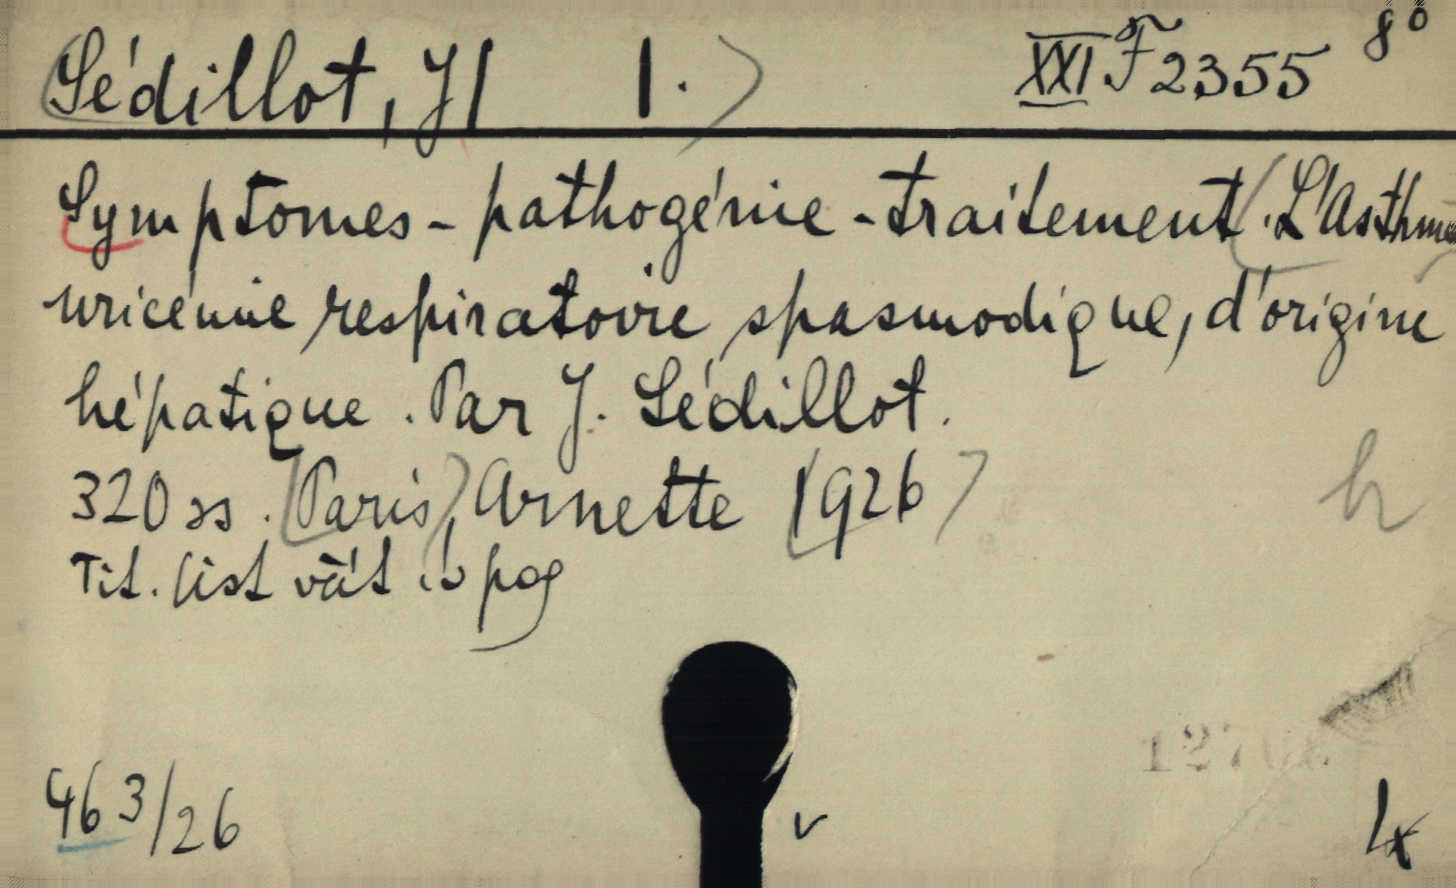 Sédillot, J| 1. XXI F 2355 8°
Symptomes - pathogénie - traitement. L'Asthme
uricémie respiratoire spasmodique, d'origine
hépatique. Par J. Sédillot.
320 ss. Paris, Arnette 1926
h
Tit. list
463/26
v